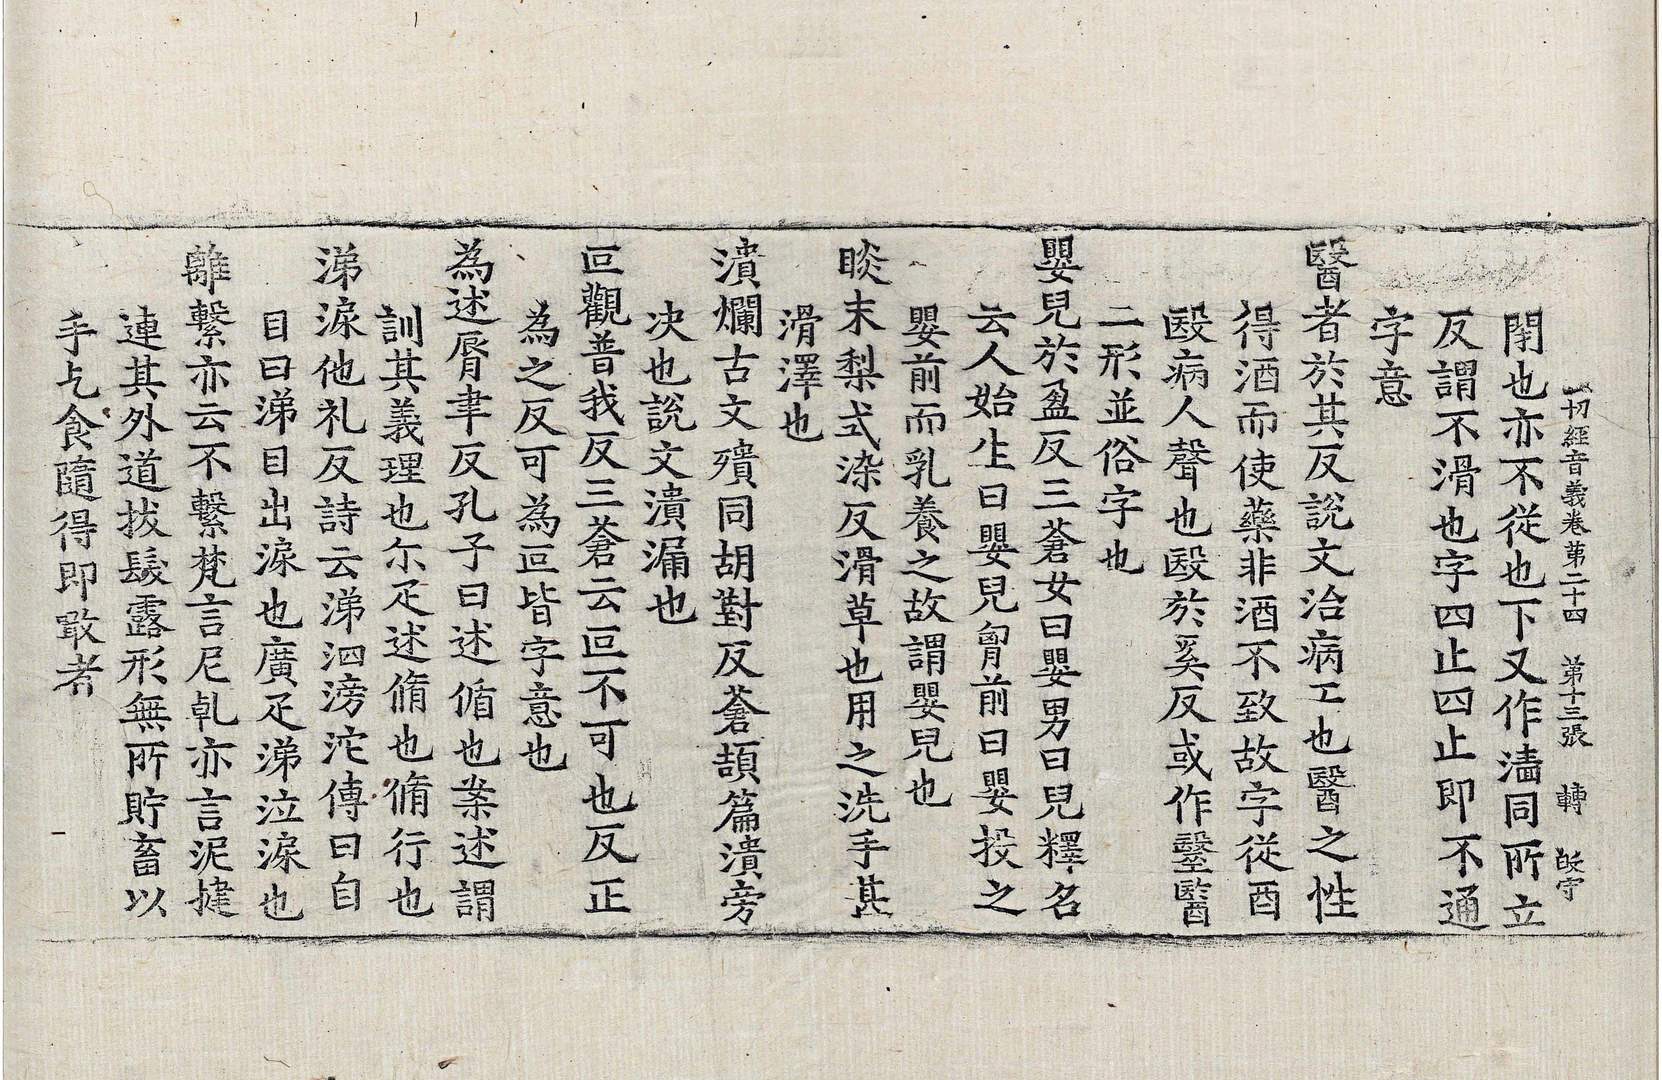 一切經音義卷苐二十四　苐十三張　轉　
閇也亦不從也下又作濇同所立
反謂不滑也字四止四止即不通
字意
醫者於其反說文治病工也醫之性
得酒而使藥非酒不致故字從酉
殹病人聲也殹於奚反或作毉醫
二形並俗字也
嬰兒於盈反三蒼女曰嬰男曰兒釋名
云人始生曰嬰兒胷前曰嬰投之
嬰前而乳養之故謂嬰兒也
睒末梨式染反滑草也用之洗手甚
滑澤也
潰爛古文殨同胡對反蒼頡篇潰旁
决也說文潰漏也
叵觀普我反三蒼云叵不可也反正
為之反可為叵皆字意也
為述脣聿反孔子曰述循也案述謂
訓其義理也尒疋述脩也脩行也
涕淚他礼反詩云涕泗滂沱傳曰自
目曰涕目出淚也廣疋涕泣淚也
離繫亦云不繫梵言尼乹亦言泥揵
連其外道拔髮露形無所貯畜以
手乞食隨得即噉者